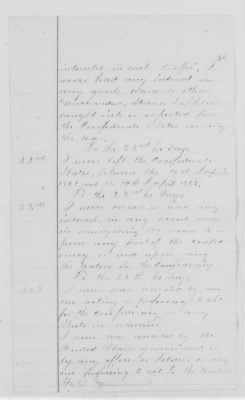 interested in such traffic, I
never had any interest in
any goods, wares or other
merchandise, Stores or supplies
brought into or exported from
the Confederate States during
the War.
To the 22nd he Says
22nd I never left the Confederate
States, between the 19th of April
and the 19th April 1865.
To the 23rd he Says
23rd I never owned or had any
interest in any vessel
navigating the
from any port of the
or upon any
the waters in the Confederacy
To the he Says
I never was arrested by any
one acting or professing to act
for the Confederacy or any
State in rebellion
I never was arrested by the
United States government or
by any officer or Soldier or any
one professing to act for the United
States Government